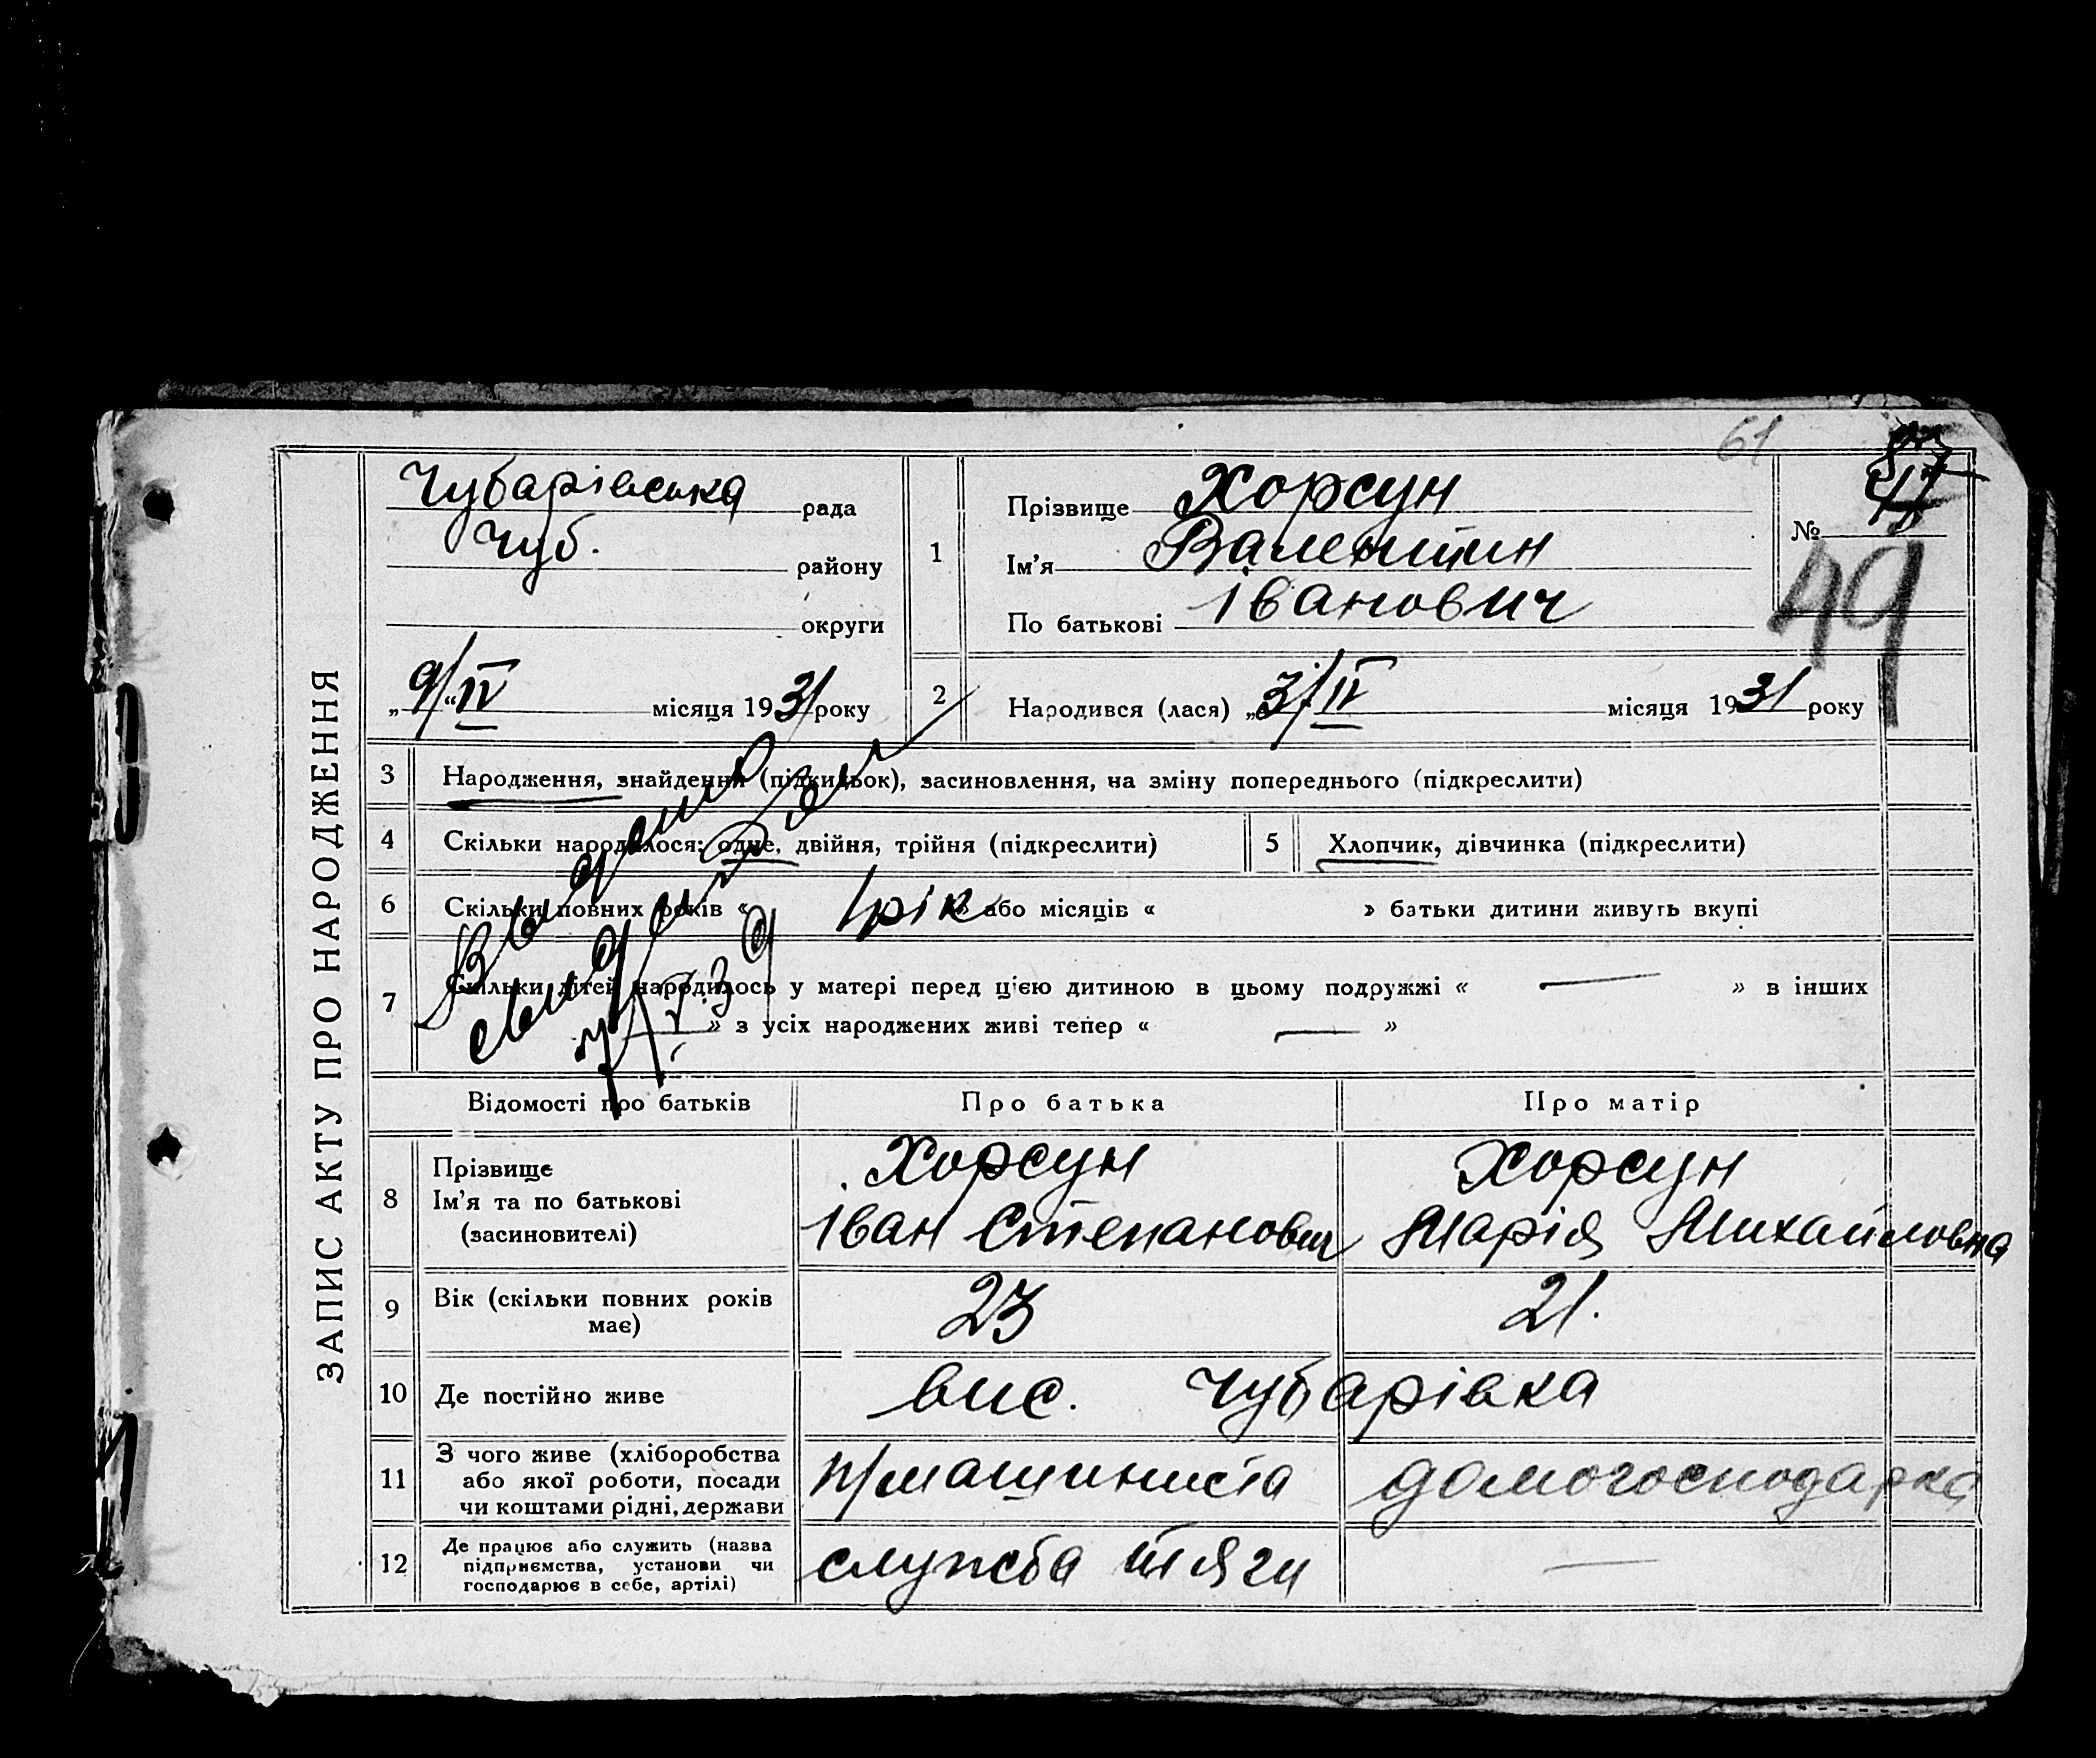 61
ЗАПИС АКТУ ПРО НАРОДЖЕННЯ
Чубарівська рада
Чуб. району
округи
„9/“ IV місяця 1931 року
1
Прізвище Хорсун
Ім’я Валентин
По батькові Іванович
№
49
2 Народився (лася) „3/ IV місяця 1931 року
3 Народження, знайдення (підкидьок), засиновлення, на зміну попереднього (підкреслити)
4 Скільки народилося: одне, двійня, трійня (підкреслити)
5 Хлопчик, дівчинка (підкреслити)
6 Скільки повних років « 1 рік » або місяців « » батьки дитини живуть вкупі
7 Скільки дітей народилось у матері перед цією дитиною в цьому подружжі « — » в інших
— » з усіх народжених живі тепер « — »
Відомості про батьків Про батька Про матір
8 Прізвище
Ім’я та по батькові
(засиновителі)
Хорсун
Іван Степанович
Хорсун
Марія Михайловна
9 Вік (скільки повних років
має)
23 21.
10 Де постійно живе вис. Чубарівка
11 З чого живе (хліборобства
або якої роботи, посади
чи коштами рідні, держави
п/машиниста домогосподарка
12 Де працює або служить (назва
підприємства, установи чи
господарює в себе, артілі)
служба тяги —